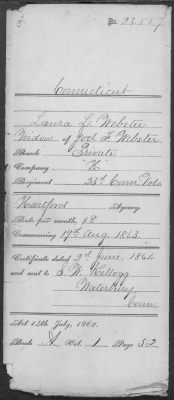 No. 23.557
Connecticut
Laura L. Webster
Widow of Joel F. Webster
Rank Private
Company "K"
Regiment 23d Conn Vols
Hartford Agency.
Rate per month, $8
Commencing 19th Aug. 1863.
Certificate dated 2d June, 1864
and sent to S. W. Kellogg
Waterbury
Conn.
Act 14th July, 1862.
Book A Vol. 1 Page 52